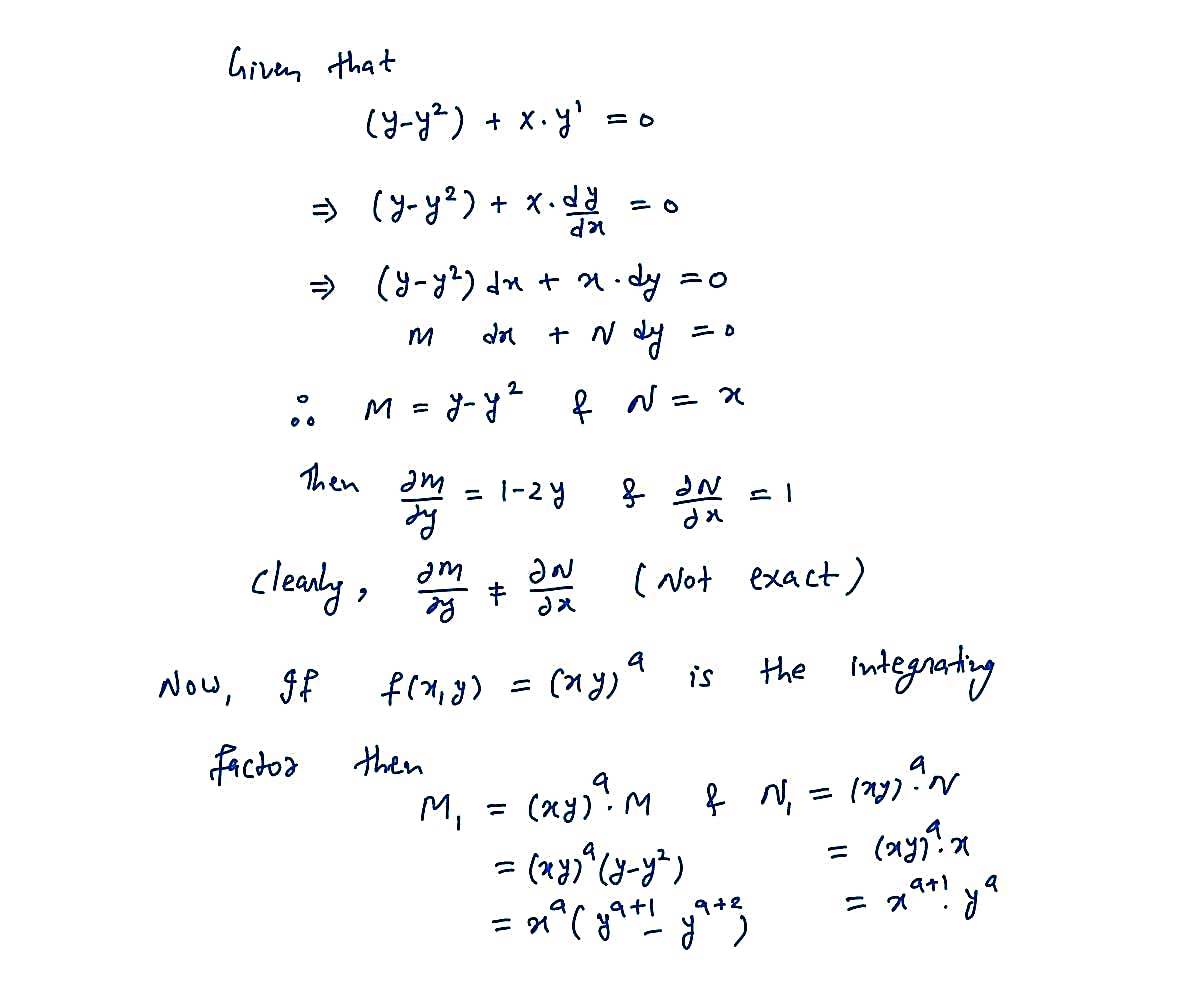 Given that
(y-y²) + x·y' = 0
⇒ (y-y²) + x·dy/dx = 0
⇒ (y-y²) dx + x·dy = 0
M dx + N dy = 0
∴ M = y-y² & N = x
Then ∂M/∂y = 1-2y & ∂N/∂x = 1
Clearly, ∂M/∂y ≠ ∂N/∂x (Not exact)
Now, If f(x,y) = (xy)^a is the integrating
factor then
M₁ = (xy)^a·M & N₁ = (xy)^a·N
= (xy)^a(y-y²) = (xy)^a·x
= x^a(y^(a+1) - y^(a+2)) = x^(a+1)·y^a